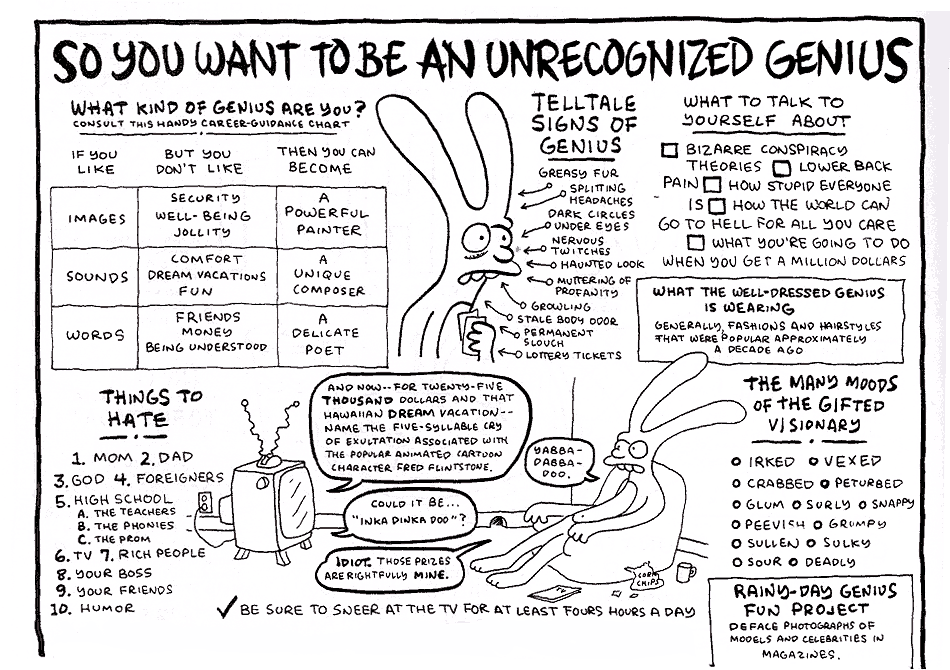 SO YOU WANT TO BE AN UNRECOGNIZED GENIUS
WHAT KIND OF GENIUS ARE YOU?
CONSULT THIS HANDY CAREER-GUIDANCE CHART
IF YOU
LIKE
BUT YOU
DON'T LIKE
THEN YOU CAN
BECOME
IMAGES
SECURITY
WELL-BEING
JOLLITY
A
POWERFUL
PAINTER
SOUNDS
COMFORT
DREAM VACATIONS
FUN
A
UNIQUE
COMPOSER
WORDS
FRIENDS
MONEY
BEING UNDERSTOOD
A
DELICATE
POET
TELLTALE
SIGNS OF
GENIUS
GREASY FUR
SPLITTING
HEADACHES
DARK CIRCLES
UNDER EYES
NERVOUS
TWITCHES
HAUNTED LOOK
MUTTERING OF
PROFANITY
GROWLING
STALE BODY ODOR
PERMANENT
SLOUCH
LOTTERY TICKETS
WHAT TO TALK TO
YOURSELF ABOUT
BIZARRE CONSPIRACY
THEORIES LOWER BACK
PAIN HOW STUPID EVERYONE
IS HOW THE WORLD CAN
GO TO HELL FOR ALL YOU CARE
WHAT YOU'RE GOING TO DO
WHEN YOU GET A MILLION DOLLARS
WHAT THE WELL-DRESSED GENIUS
IS WEARING
GENERALLY, FASHIONS AND HAIRSTYLES
THAT WERE POPULAR APPROXIMATELY
A DECADE AGO
THINGS TO
HATE
1. MOM 2. DAD
3. GOD 4. FOREIGNERS
5. HIGH SCHOOL
A. THE TEACHERS
B. THE PHONIES
C. THE PROM
6. TV 7. RICH PEOPLE
8. YOUR BOSS
9. YOUR FRIENDS
10. HUMOR
AND NOW--FOR TWENTY-FIVE
THOUSAND DOLLARS AND THAT
HAWAIIAN DREAM VACATION--
NAME THE FIVE-SYLLABLE CRY
OF EXULTATION ASSOCIATED WITH
THE POPULAR ANIMATED CARTOON
CHARACTER FRED FLINTSTONE.
YABBA-
DABBA-
DOO.
COULD IT BE...
"INKA DINKA DOO"?
IDIOT. THOSE PRIZES
ARE RIGHTFULLY MINE.
TV
CORN
CHIPS
BE SURE TO SNEER AT THE TV FOR AT LEAST FOURS HOURS A DAY
THE MANY MOODS
OF THE GIFTED
VISIONARY
IRKED VEXED
CRABBED PETURBED
GLUM SURLY SNAPPY
PEEVISH GRUMPY
SULLEN SULKY
SOUR DEADLY
RAINY-DAY GENIUS
FUN PROJECT
DEFACE PHOTOGRAPHS OF
MODELS AND CELEBRITIES IN
MAGAZINES.